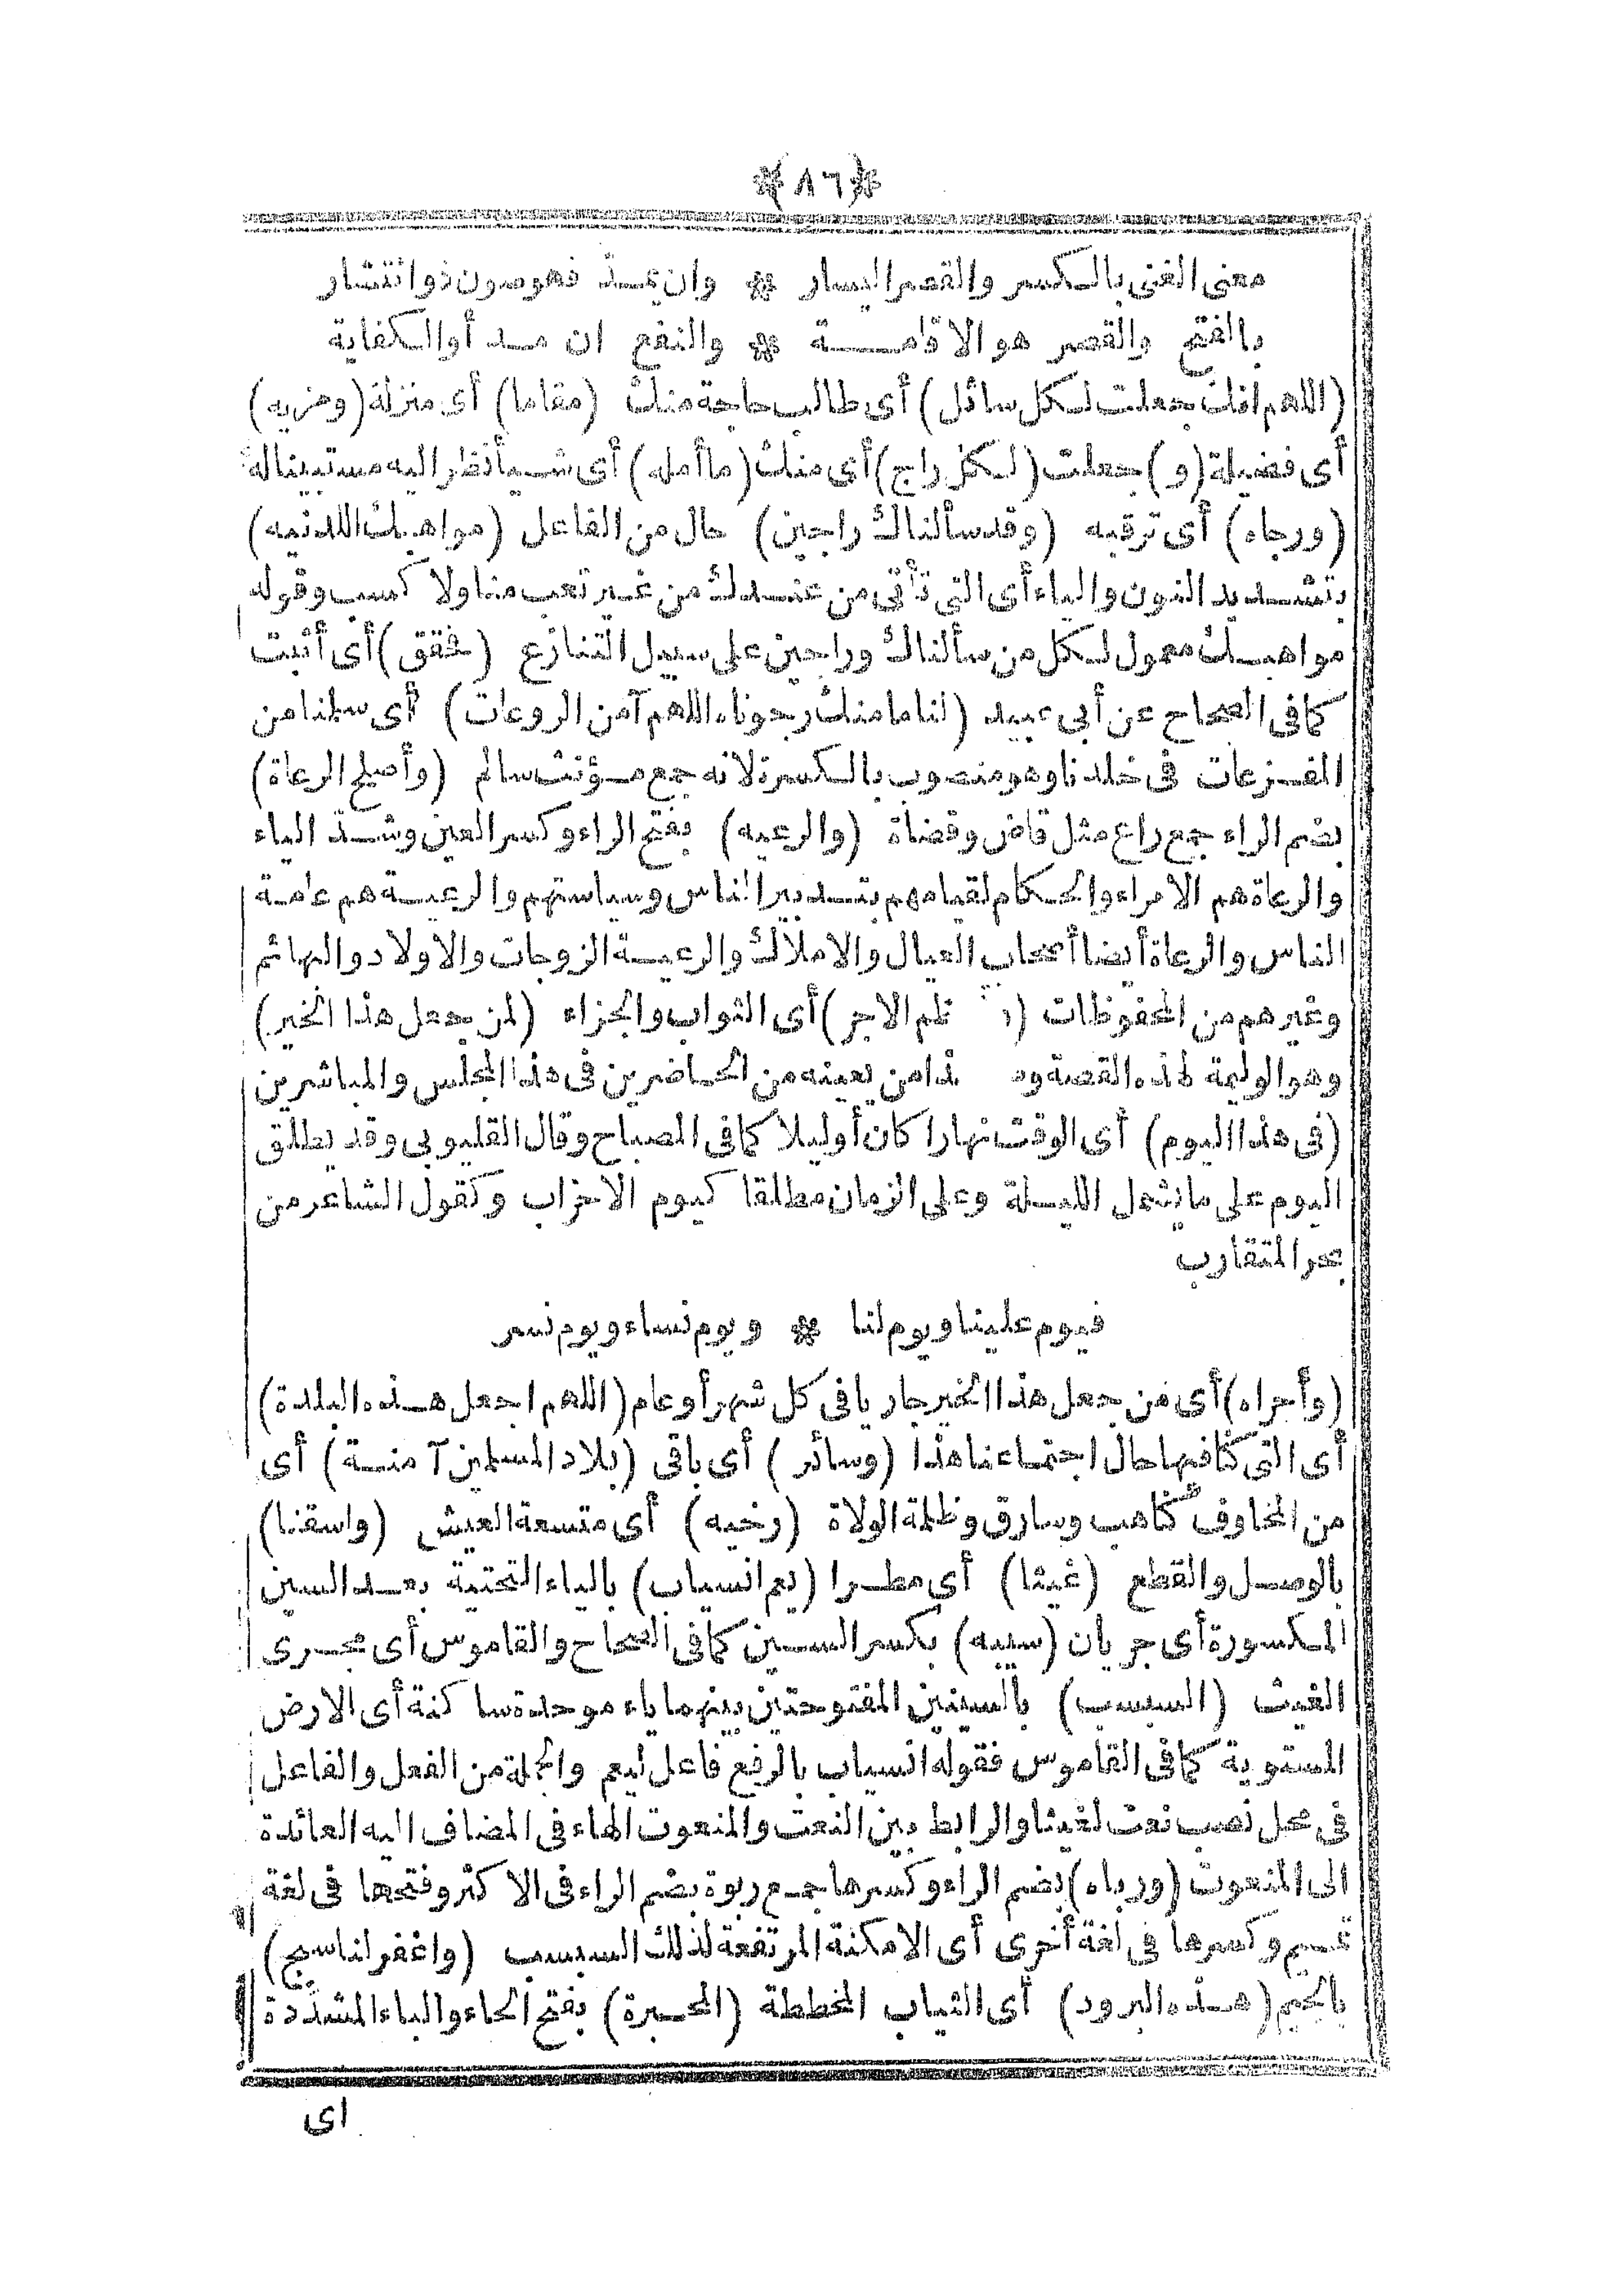 ﴿٨٦﴾
معنى الغنى بالكسر والقصر اليسار * وان يمد فهو صون ذو انتشار
بالفتح والقصر هو الاقامة * والنفع ان مد أو الكفاية
(اللهم انك جعلت لكل سائل) أى طالب حاجة منك (مقاما) أى منزلة (ومزيه)
أى فضيلة (و) جعلت (لكل راج) أى منك (ما أمله) أى شيأ نظر اليه مستبيناله
(ورجاه) أى ترقبه (وقد سألناك راجين) حال من الفاعل (مواهبك اللدنيه)
بتشديد النون والياء أى التى تأتى من عندك من غير تعب منا ولا كسب وقوله
مواهبك معمول لكل من سألناك وراجين على سبيل التنازع (فحقق) أى أثبت
كما فى الصحاح عن أبى عبيد (لنا ما منك رجوناه اللهم آمن الروعات) أى سلمنا من
الفزعات فى خلدنا وهو منصوب بالكسرة لانه جمع مؤنث سالم (وأصلح الرعاة)
بضم الراء جمع راع مثل قاض وقضاة (والرعيه) بفتح الراء وكسر العين وشد الياء
والرعاة هم الامراء والحكام لقيامهم بتدبير الناس وسياستهم والرعية هم عامة
الناس والرعاة أيضا أصحاب العيال والاملاك والرعية الزوجات والاولاد والبهائم
وغيرهم من المحفوظات ( ظم الاجر) أى الثواب والجزاء (لمن جعل هذا الخير)
وهو الوليمة لهذه القصة و ذا من يعينه من الحاضرين فى هذا المجلس والمباشرين
(فى هذا اليوم) أى الوقت نهارا كان أو ليلا كما فى المصباح وقال القليوبى وقد يطلق
اليوم على ما يشمل الليلة وعلى الزمان مطلقا كيوم الاحزاب وكقول الشاعر من
بحر المتقارب
فيوم علينا ويوم لنا * ويوم نساء ويوم نسر
(وأجراه) أى من جعل هذا الخير جاريا فى كل شهر أو عام (اللهم اجعل هذه البلدة)
أى التى كنا فيها حال اجتماعنا هذا (وسائر) أى باقى (بلاد المسلمين آمنة) أى
من المخاوف كناهب وسارق وظلمة الولاة (رخيه) أى متسعة العيش (واسقنا)
بالوصل والقطع (غيثا) أى مطرا (يعم انسياب) بالياء التحتية بعد السين
المكسورة أى جريان (سيبه) بكسر السين كما فى الصحاح والقاموس أى مجرى
الغيث (السبسب) بالسينين المفتوحتين بينهما باء موحدة ساكنة أى الارض
المستوية كما فى القاموس فقوله انسياب بالرفع فاعل ليعم والجملة من الفعل والفاعل
فى محل نصب نعت لغيثا والرابط بين النعت والمنعوت الهاء فى المضاف اليه العائدة
الى المنعوت (ورباه) بضم الراء وكسرها جمع ربوة بضم الراء فى الاكثر وفتحها فى لغة
تميم وكسرها فى لغة أخرى أى الامكنة المرتفعة لذلك السبسب (واغفر لناسج)
بالجيم (هذه البرود) أى الثياب المخططة (المحبرة) بفتح الحاء والباء المشددة
اى